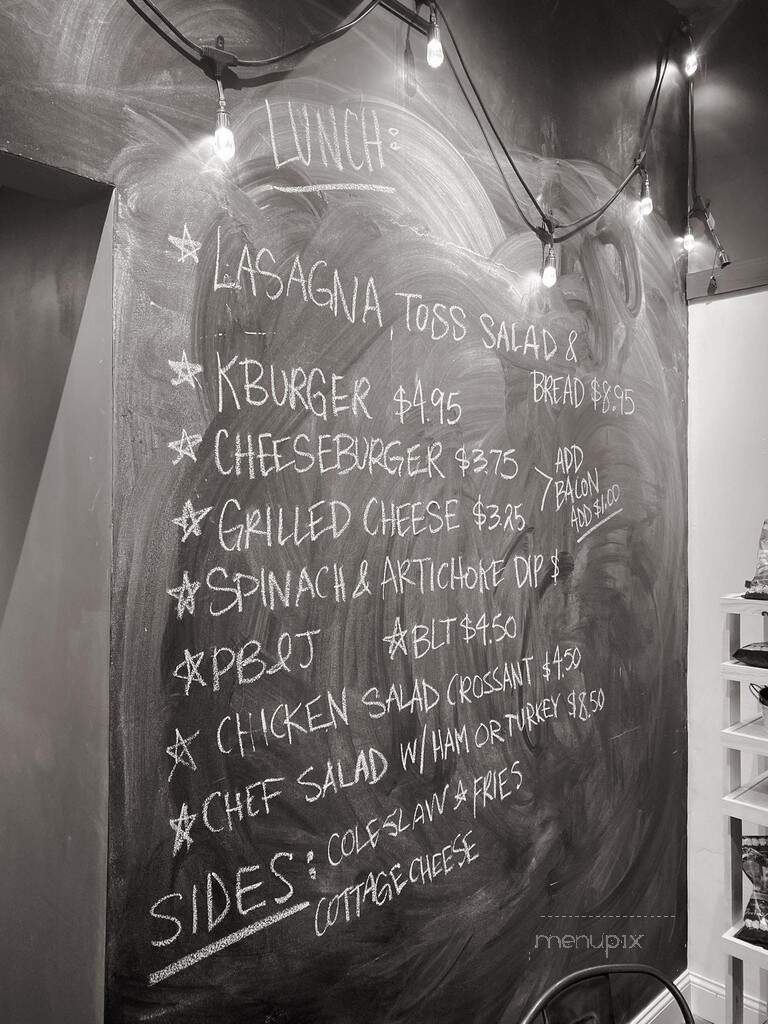 LUNCH:
☆ LASAGNA, TOSS SALAD &
BREAD $8.95
☆ KBURGER $4.95
☆ CHEESEBURGER $3.75
> ADD
BACON
ADD $1.00
☆ GRILLED CHEESE $3.25
☆ SPINACH & ARTICHOKE DIP $
☆ PB&J ☆ BLT $4.50
☆ CHICKEN SALAD CROSSANT $4.50
☆ CHEF SALAD W/HAM OR TURKEY $8.50
SIDES: COLESLAW ☆ FRIES
COTTAGE CHEESE
menupix